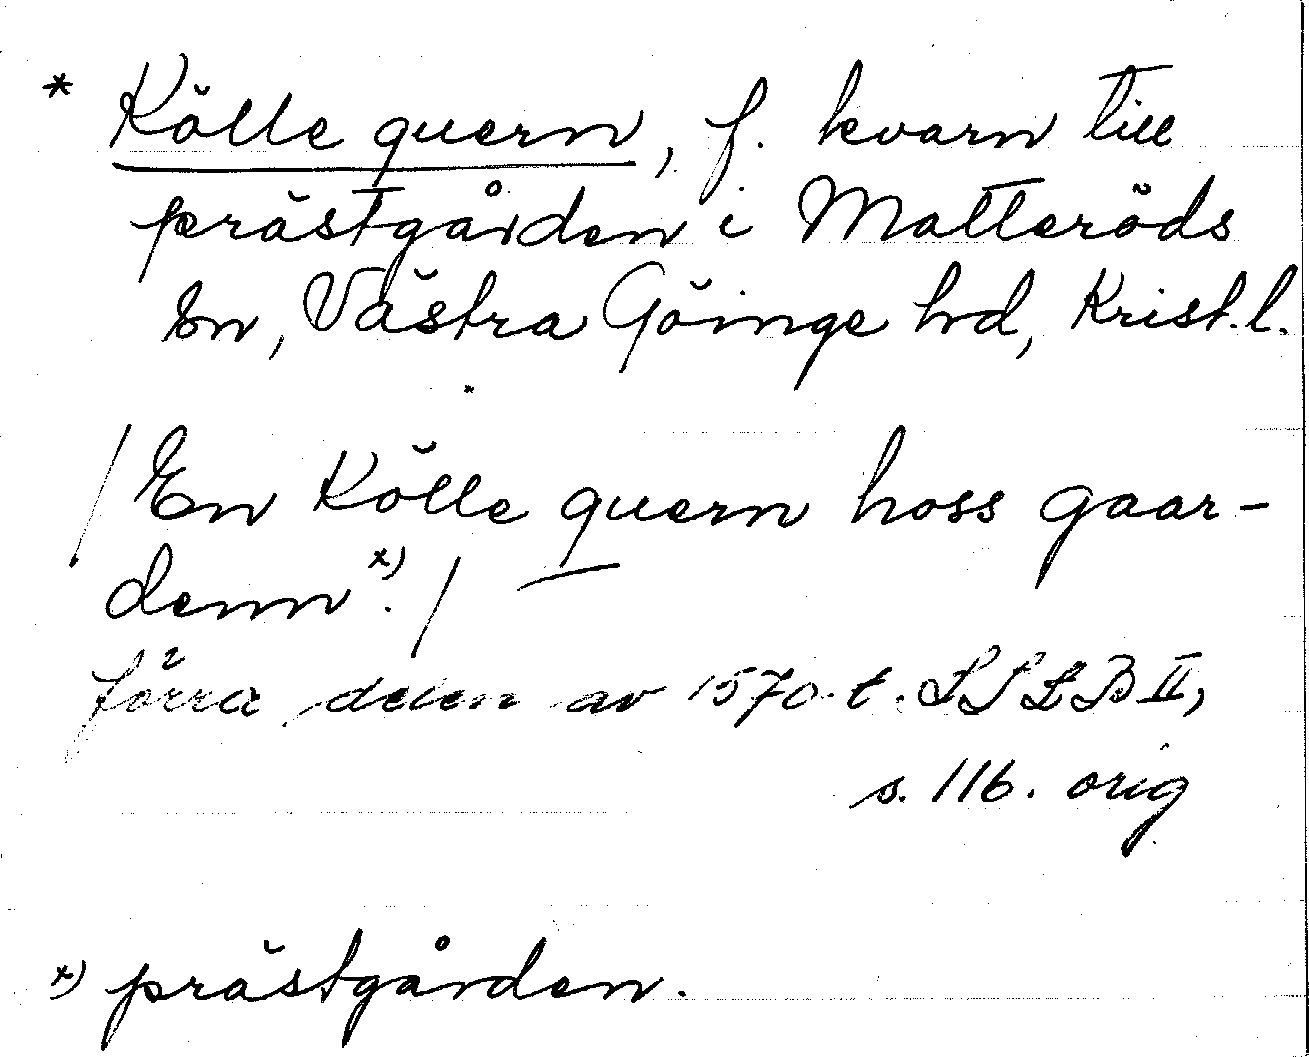 * Kölle quern, f. kvarn till
prästgården i Matteröds
sn, Västra Göinge hd, Krist. l.
/ En Kölle quern hoss gaar-
denn x). /
förra delen av 1570-t. LSLB II,
s. 116. orig
x) prästgården.